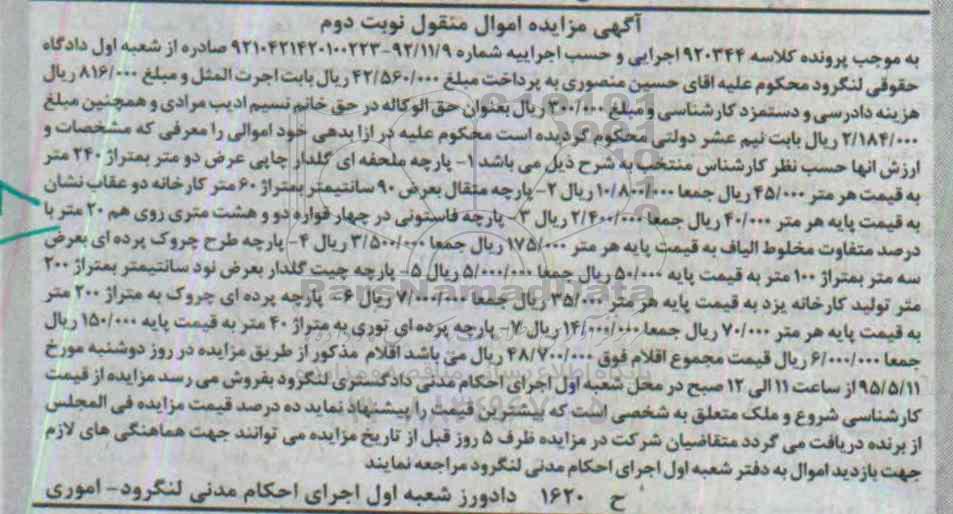 آگهی مزایده اموال منقول نوبت دوم
به موجب پرونده کلاسه ۹۲۰۳۴۴ اجرایی و حسب اجراییه شماره ۹۲/۱۱/۹-۹۲۱۰۴۲۱۴۲۰۱۰۰۲۲۳ صادره از شعبه اول دادگاه
حقوقی لنگرود محکوم علیه اقای حسین منصوری به پرداخت مبلغ ۴۲/۵۶۰/۰۰۰ ریال بابت اجرت المثل و مبلغ ۸۱۶/۰۰۰ ریال
هزینه دادرسی و دستمزد کارشناسی و مبلغ ۳۰۰/۰۰۰ ریال بعنوان حق الوکاله در حق خانم نسیم ادیب مرادی و همچنین مبلغ
۲/۱۸۴/۰۰۰ ریال بابت نیم عشر دولتی محکوم گردیده است محکوم علیه در ازا بدهی خود اموالی را معرفی که مشخصات و
ارزش انها حسب نظر کارشناس منتخب به شرح ذیل می باشد ۱- پارچه ملحفه ای گلدار چاپی عرض دو متر بمتراژ ۲۴۰ متر
به قیمت هر متر ۴۵/۰۰۰ ریال جمعا ۱۰/۸۰۰/۰۰۰ ریال ۲- پارچه متقال بعرض ۹۰ سانتیمتر بمتراژ ۶۰ متر کارخانه دو عقاب نشان
به قیمت پایه هر متر ۴۰/۰۰۰ ریال جمعا ۲/۴۰۰/۰۰۰ ریال ۳- پارچه فاستونی در چهار قواره دو و هشت متری روی هم ۲۰ متر با
درصد متفاوت مخلوط الیاف به قیمت پایه هر متر ۱۷۵/۰۰۰ ریال جمعا ۳/۵۰۰/۰۰۰ ریال ۴- پارچه طرح چروک پرده ای بعرض
سه متر بمتراژ ۱۰۰ متر به قیمت پایه ۵۰/۰۰۰ ریال جمعا ۵/۰۰۰/۰۰۰ ریال ۵- پارچه چیت گلدار بعرض نود سانتیمتر بمتراژ ۲۰۰
متر تولید کارخانه یزد به قیمت پایه هر متر ۳۵/۰۰۰ ریال جمعا ۷/۰۰۰/۰۰۰ ریال ۶- پارچه پرده ای چروک به متراژ ۲۰۰ متر
به قیمت پایه هر متر ۷۰/۰۰۰ ریال جمعا ۱۴/۰۰۰/۰۰۰ ریال ۷- پارچه پرده ای توری به متراژ ۴۰ متر به قیمت پایه ۱۵۰/۰۰۰ ریال
جمعا ۶/۰۰۰/۰۰۰ ریال قیمت مجموع اقلام فوق ۴۸/۷۰۰/۰۰۰ ریال می باشد اقلام مذکور از طریق مزایده در روز دوشنبه مورخ
۹۵/۵/۱۱ از ساعت ۱۱ الی ۱۲ صبح در محل شعبه اول اجرای احکام مدنی دادگستری لنگرود بفروش می رسد مزایده از قیمت
کارشناسی شروع و ملک متعلق به شخصی است که بیشترین قیمت را پیشنهاد نماید ده درصد قیمت مزایده فی المجلس
از برنده دریافت می گردد متقاضیان شرکت در مزایده ظرف ۵ روز قبل از تاریخ مزایده می توانند جهت هماهنگی های لازم
جهت بازدید اموال به دفتر شعبه اول اجرای احکام مدنی لنگرود مراجعه نمایند
ح ۱۶۲۰ دادورز شعبه اول اجرای احکام مدنی لنگرود- اموری
ParsNamadData